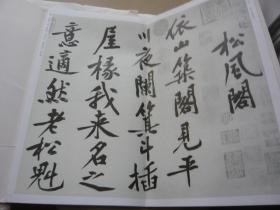 松風閣
依山築閣見平
川夜闌箕斗插
屋椽我来名之
意適然老松魁